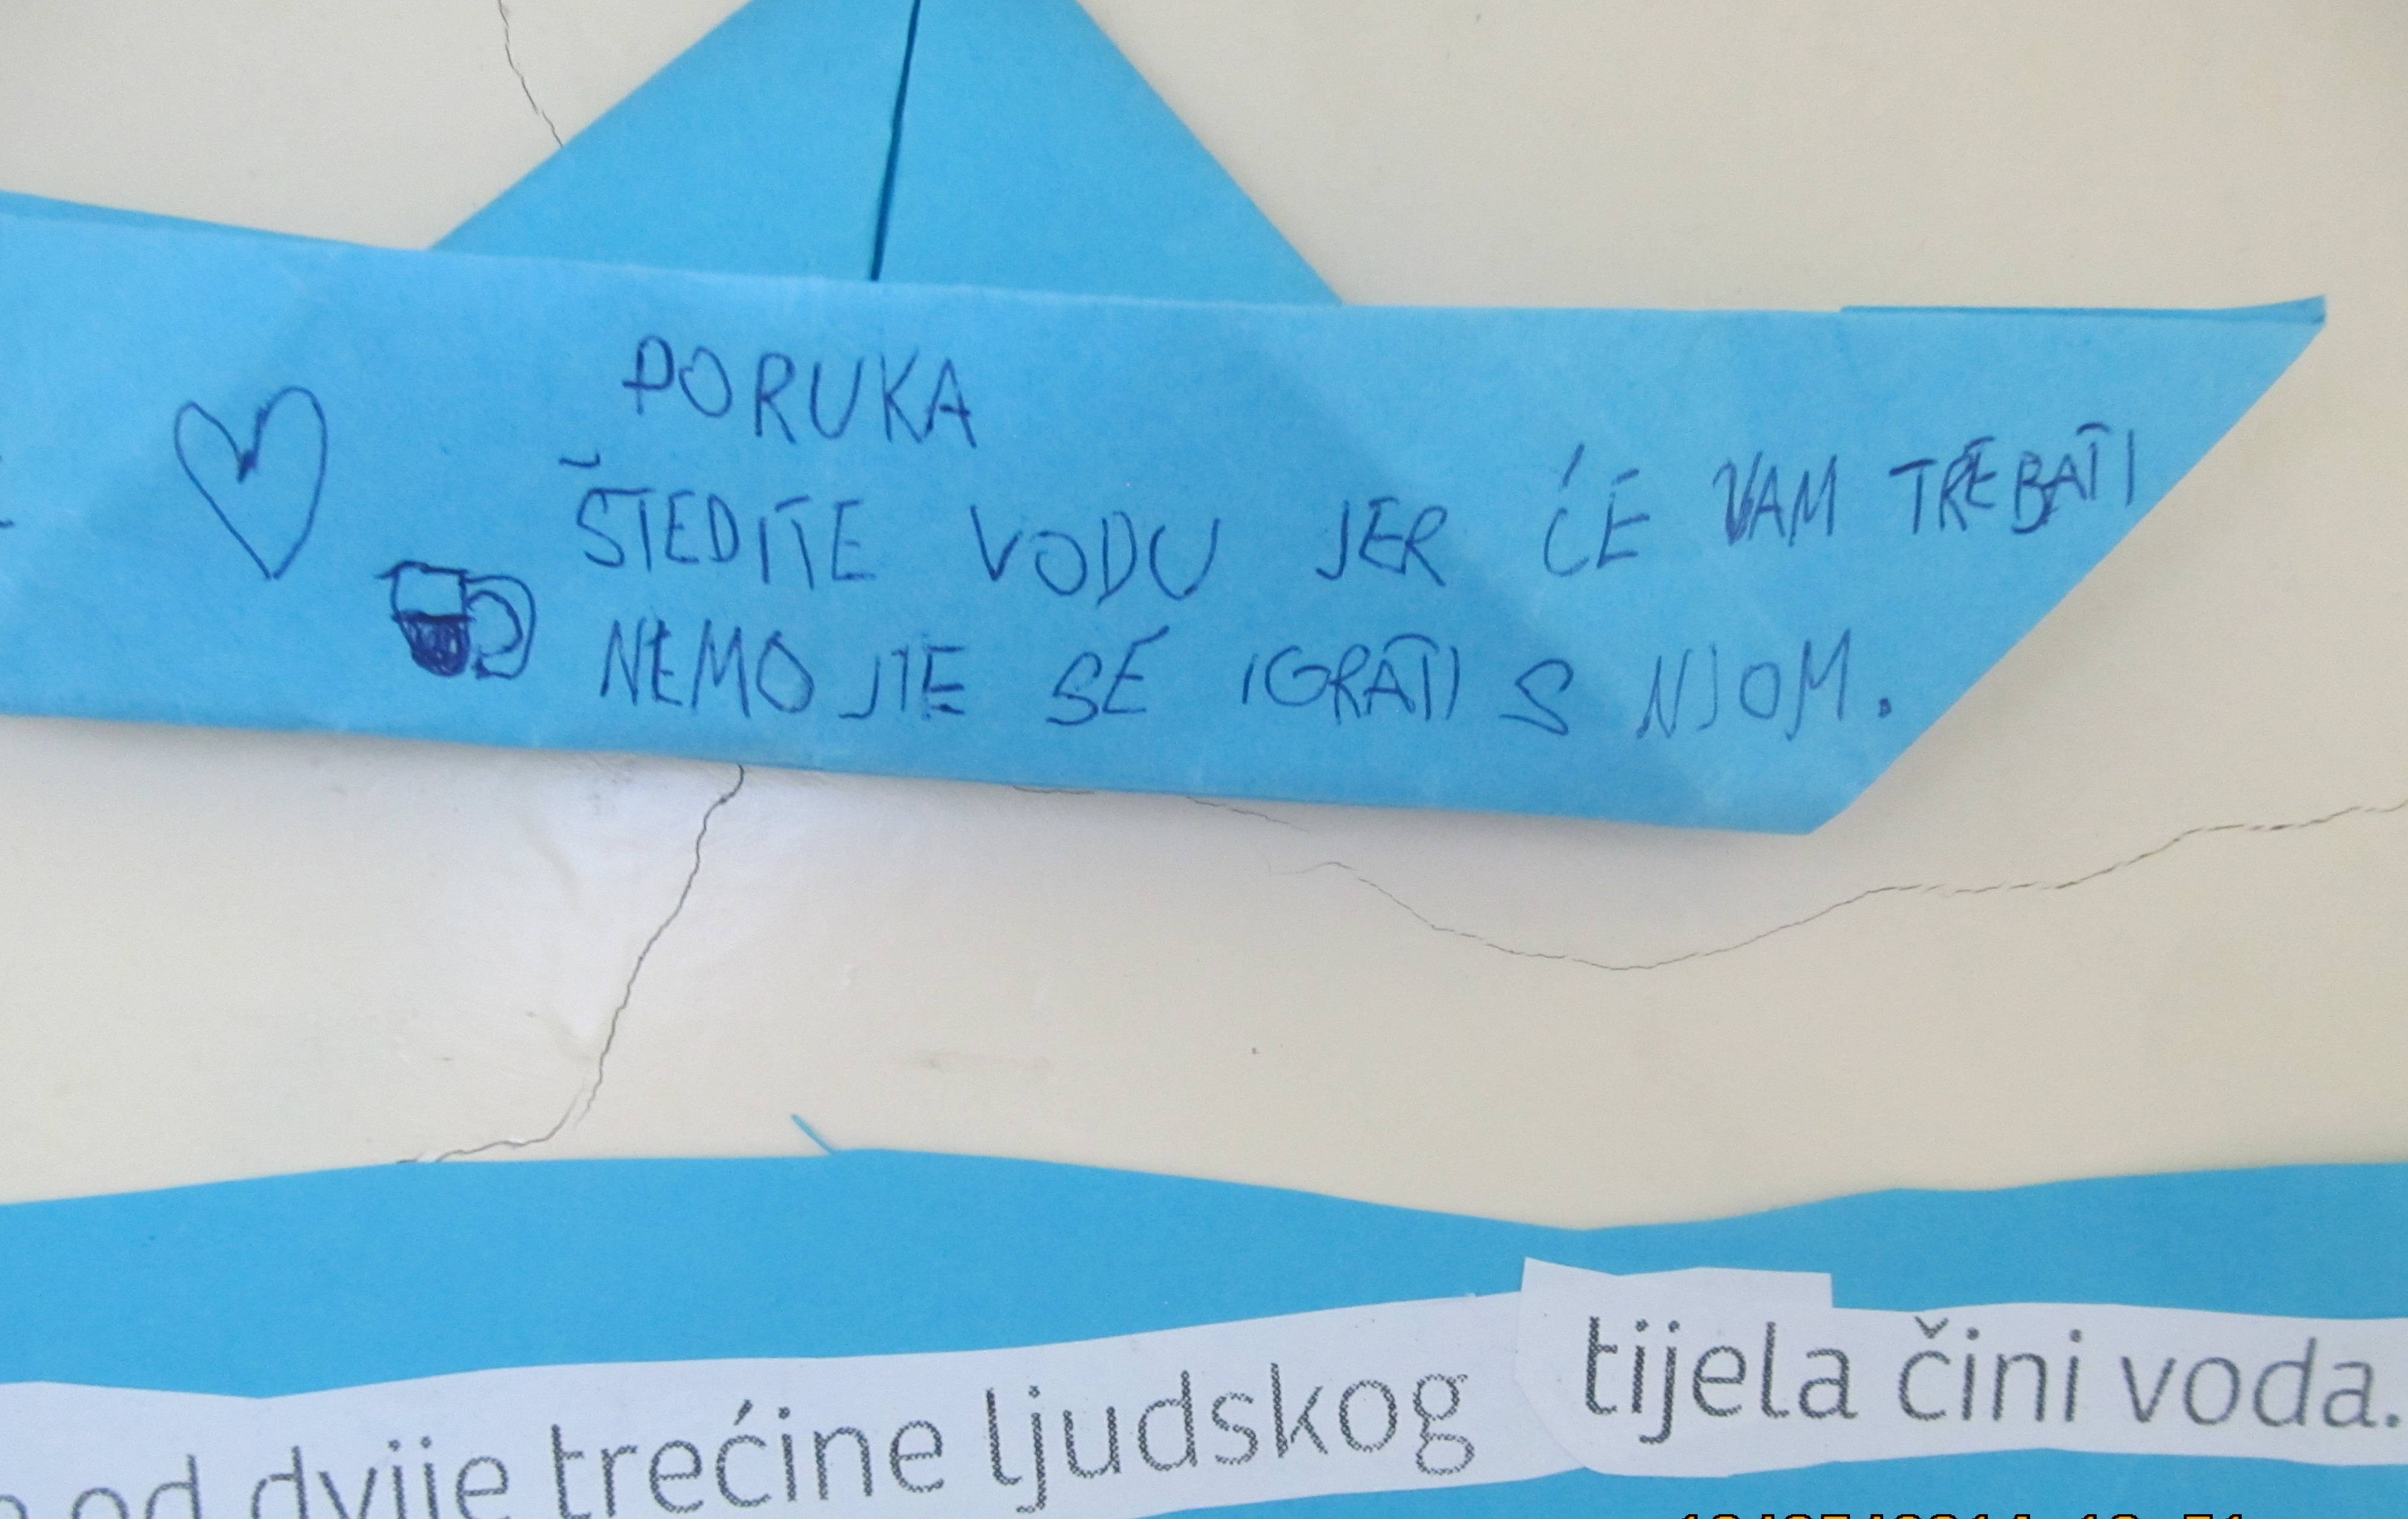 PORUKA
ŠTEDITE VODU JER ĆE VAM TREBATI
NEMOJTE SE IGRATI S NJOM.
od dvije trećine ljudskog tijela čini voda.